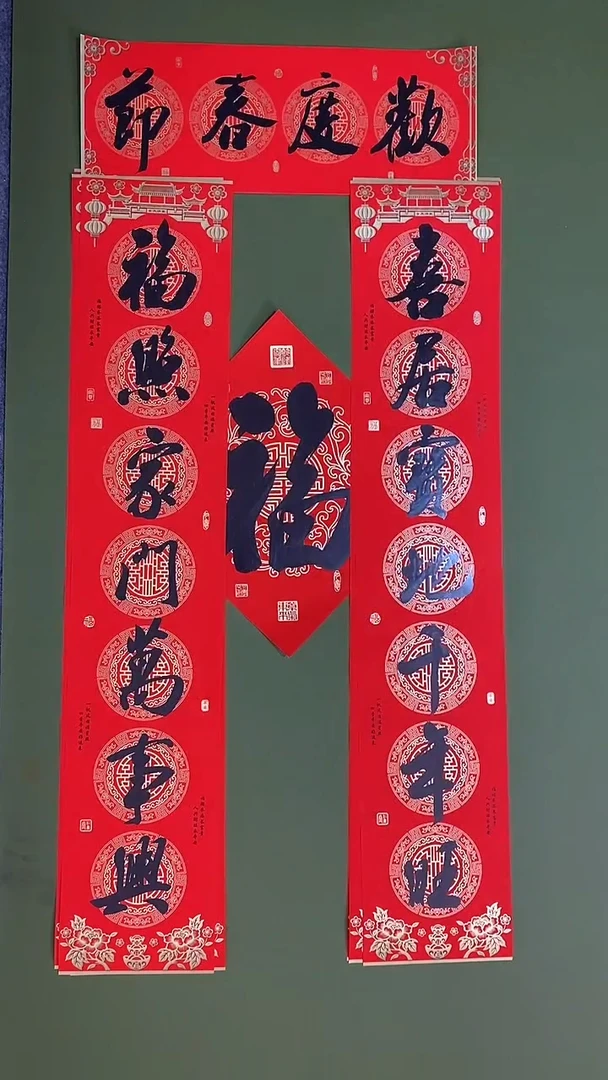 歡度春節
喜居寶地千年旺
福照家門萬事興
福